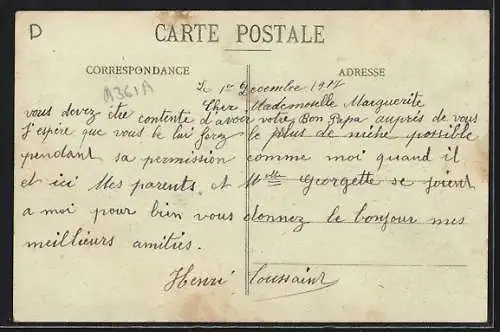 D
CARTE POSTALE
CORRESPONDANCE
ADRESSE
A361A
Le 1er Decembre 1917
Cher Mademoiselle Marguerite
vous devez être contente d'avoir votre Bon Papa auprès de vous
J'espère que vous le lui ferez le plus de niche possible
pendant sa permission comme moi quand il
et ici Mes parents et Melle Georgette se joient
a moi pour bien vous donnez le bonjour mes
meillieurs amitiés.
Henri Toussaint